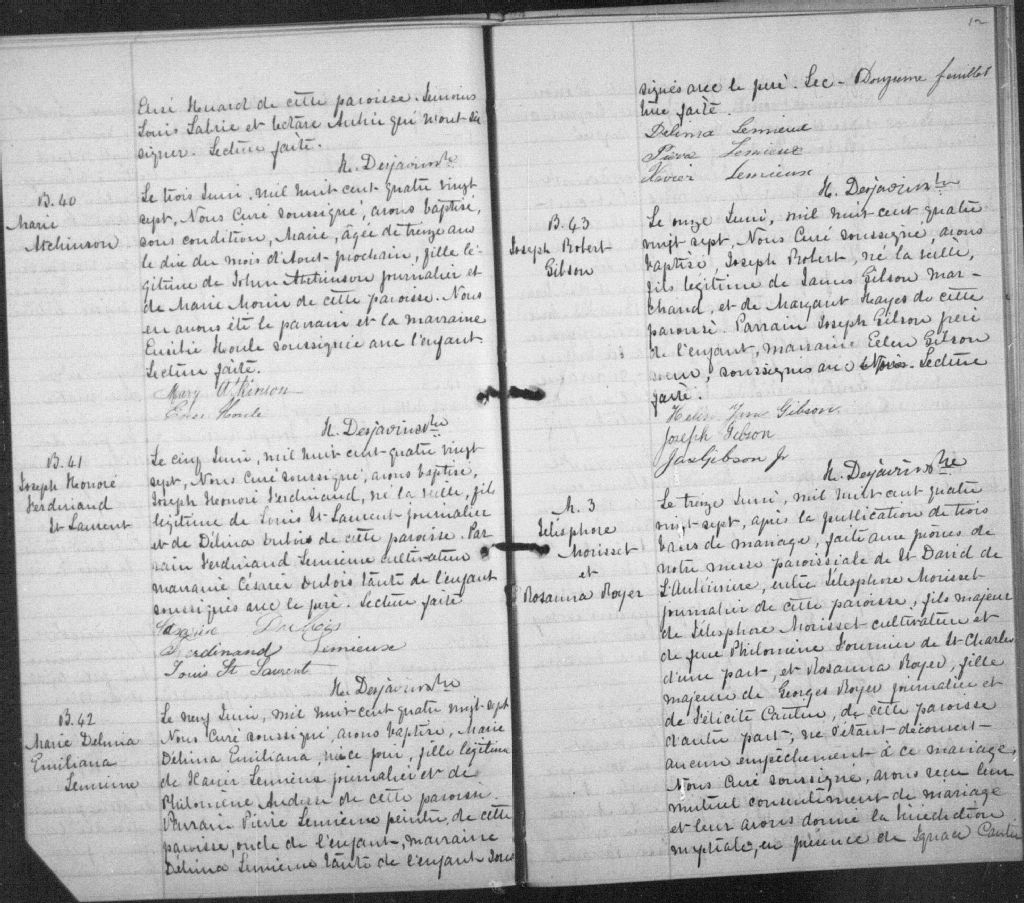 Curé Huard de cette paroisse. Témoins
Louis Labrie et Octave Aubin qui n'ont su
signer. Lecture faite.
N. Desjavins Ptre
B. 40
Marie
Atchinson
Le trois Juin, mil huit-cent quatre vingt
sept, Nous Curé soussigné, avons baptisé,
sous condition, Marie, âgée de treize ans
le dix du mois d'Aout-prochain, fille lé-
gitime de John Atchinson journalier et
de Marie Morin de cette paroisse. Nous
en avons été le parrain et la marraine
Houle soussignée avec l'enfant
Lecture faite.
Mary Atkinson
Houle
N. Desjavins Ptre
B. 41
Joseph Honoré
Ferdinand
St Laurent
Le cinq Juin, mil huit cent-quatre vingt
sept, Nous Curé soussigné, avons baptisé,
Joseph Honoré Ferdinand, né la veille, fils
légitime de Louis St-Laurent journalier
et de Délina Dubois de cette paroisse. Par
rain Ferdinand Lemieux cultivateur
marraine Césarie Dubois tante de l'enfant
soussignés avec le père. Lecture faite
Dubois
Ferdinand Lemieuse
Louis St Laurent
N. Desjavins Ptre
B. 42
Marie Delima
Emiliana
Lemieux
Le neuf Juin, mil huit cent quatre vingt-sept
Nous Curé soussigné, avons baptisé, Marie
Délima Emiliana, née ce jour, fille légitime
de Xavier Lemieux journalier et de
Philomène de cette paroisse.
Parrain Pierre Lemieux peintre, de cette
paroisse, oncle de l'enfant, marraine
Délima Lemieux tante de l'enfant sous
12
signés avec le père. Lec - Douzieme feuillet
ture faite.
Delima Lemieux
Pierre Lemieux
Xavier Lemieux
N. Desjavins Ptre
B. 43
Joseph Robert
Gibson
Le onze Juin, mil huit cent quatre
vingt sept, Nous Curé soussigné, avons
baptisé, Joseph Robert, né la veille,
fils légitime de James Gibson mar-
chand, et de Margaret Hayes de cette
paroisse. Parrain Joseph Gibson frère
de l'enfant, marraine Ellen Gibson
soeur, soussignés avec Nous. Lecture
faite.
Gibson
Joseph Gibson
Jas Gibson Jr
N. Desjavins Ptre
M. 3
Télesphore
Morisset
et
Rosanna Royer
Le treize Juin, mil huit cent quatre
vingt-sept, après la publication de trois
bans de mariage, faite aux prônes de
notre messe paroissiale de St David de
L'Auberivière, entre Télesphore Morisset
journalier de cette paroisse, fils majeur
de Télesphore Morisset cultivateur et
de feue Philomène Fournier de St Charles
d'une part, et Rosanna Royer, fille
majeure de Georges Royer journalier et
de Félicité Cantin, de cette paroisse
d'autre part, ne s'étant découvert
aucun empêchement à ce mariage,
Nous Curé soussigné, avons reçu leur
mutuel consentement de mariage
et leur avons donné la bénédiction
nuptiale, en présence de Ignace Cantin